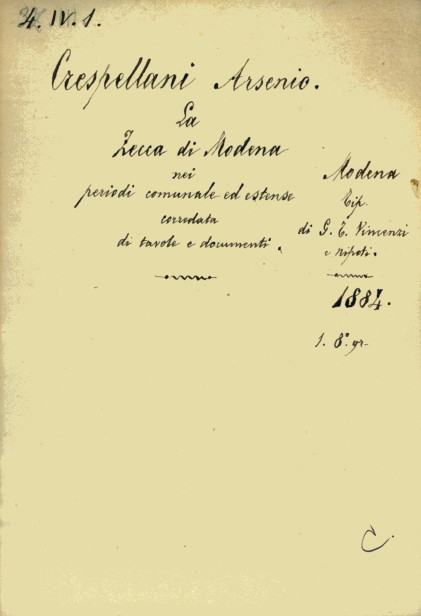 4. IV. 1.
Crespellani Arsenio.
La
Zecca di Modena
nei
periodi comunale ed estense
corredata
di tavole e documenti.
Modena
Tip.
di G. T. Vincenzi
e Nipoti.
1884.
1. 8.° gr.
C.